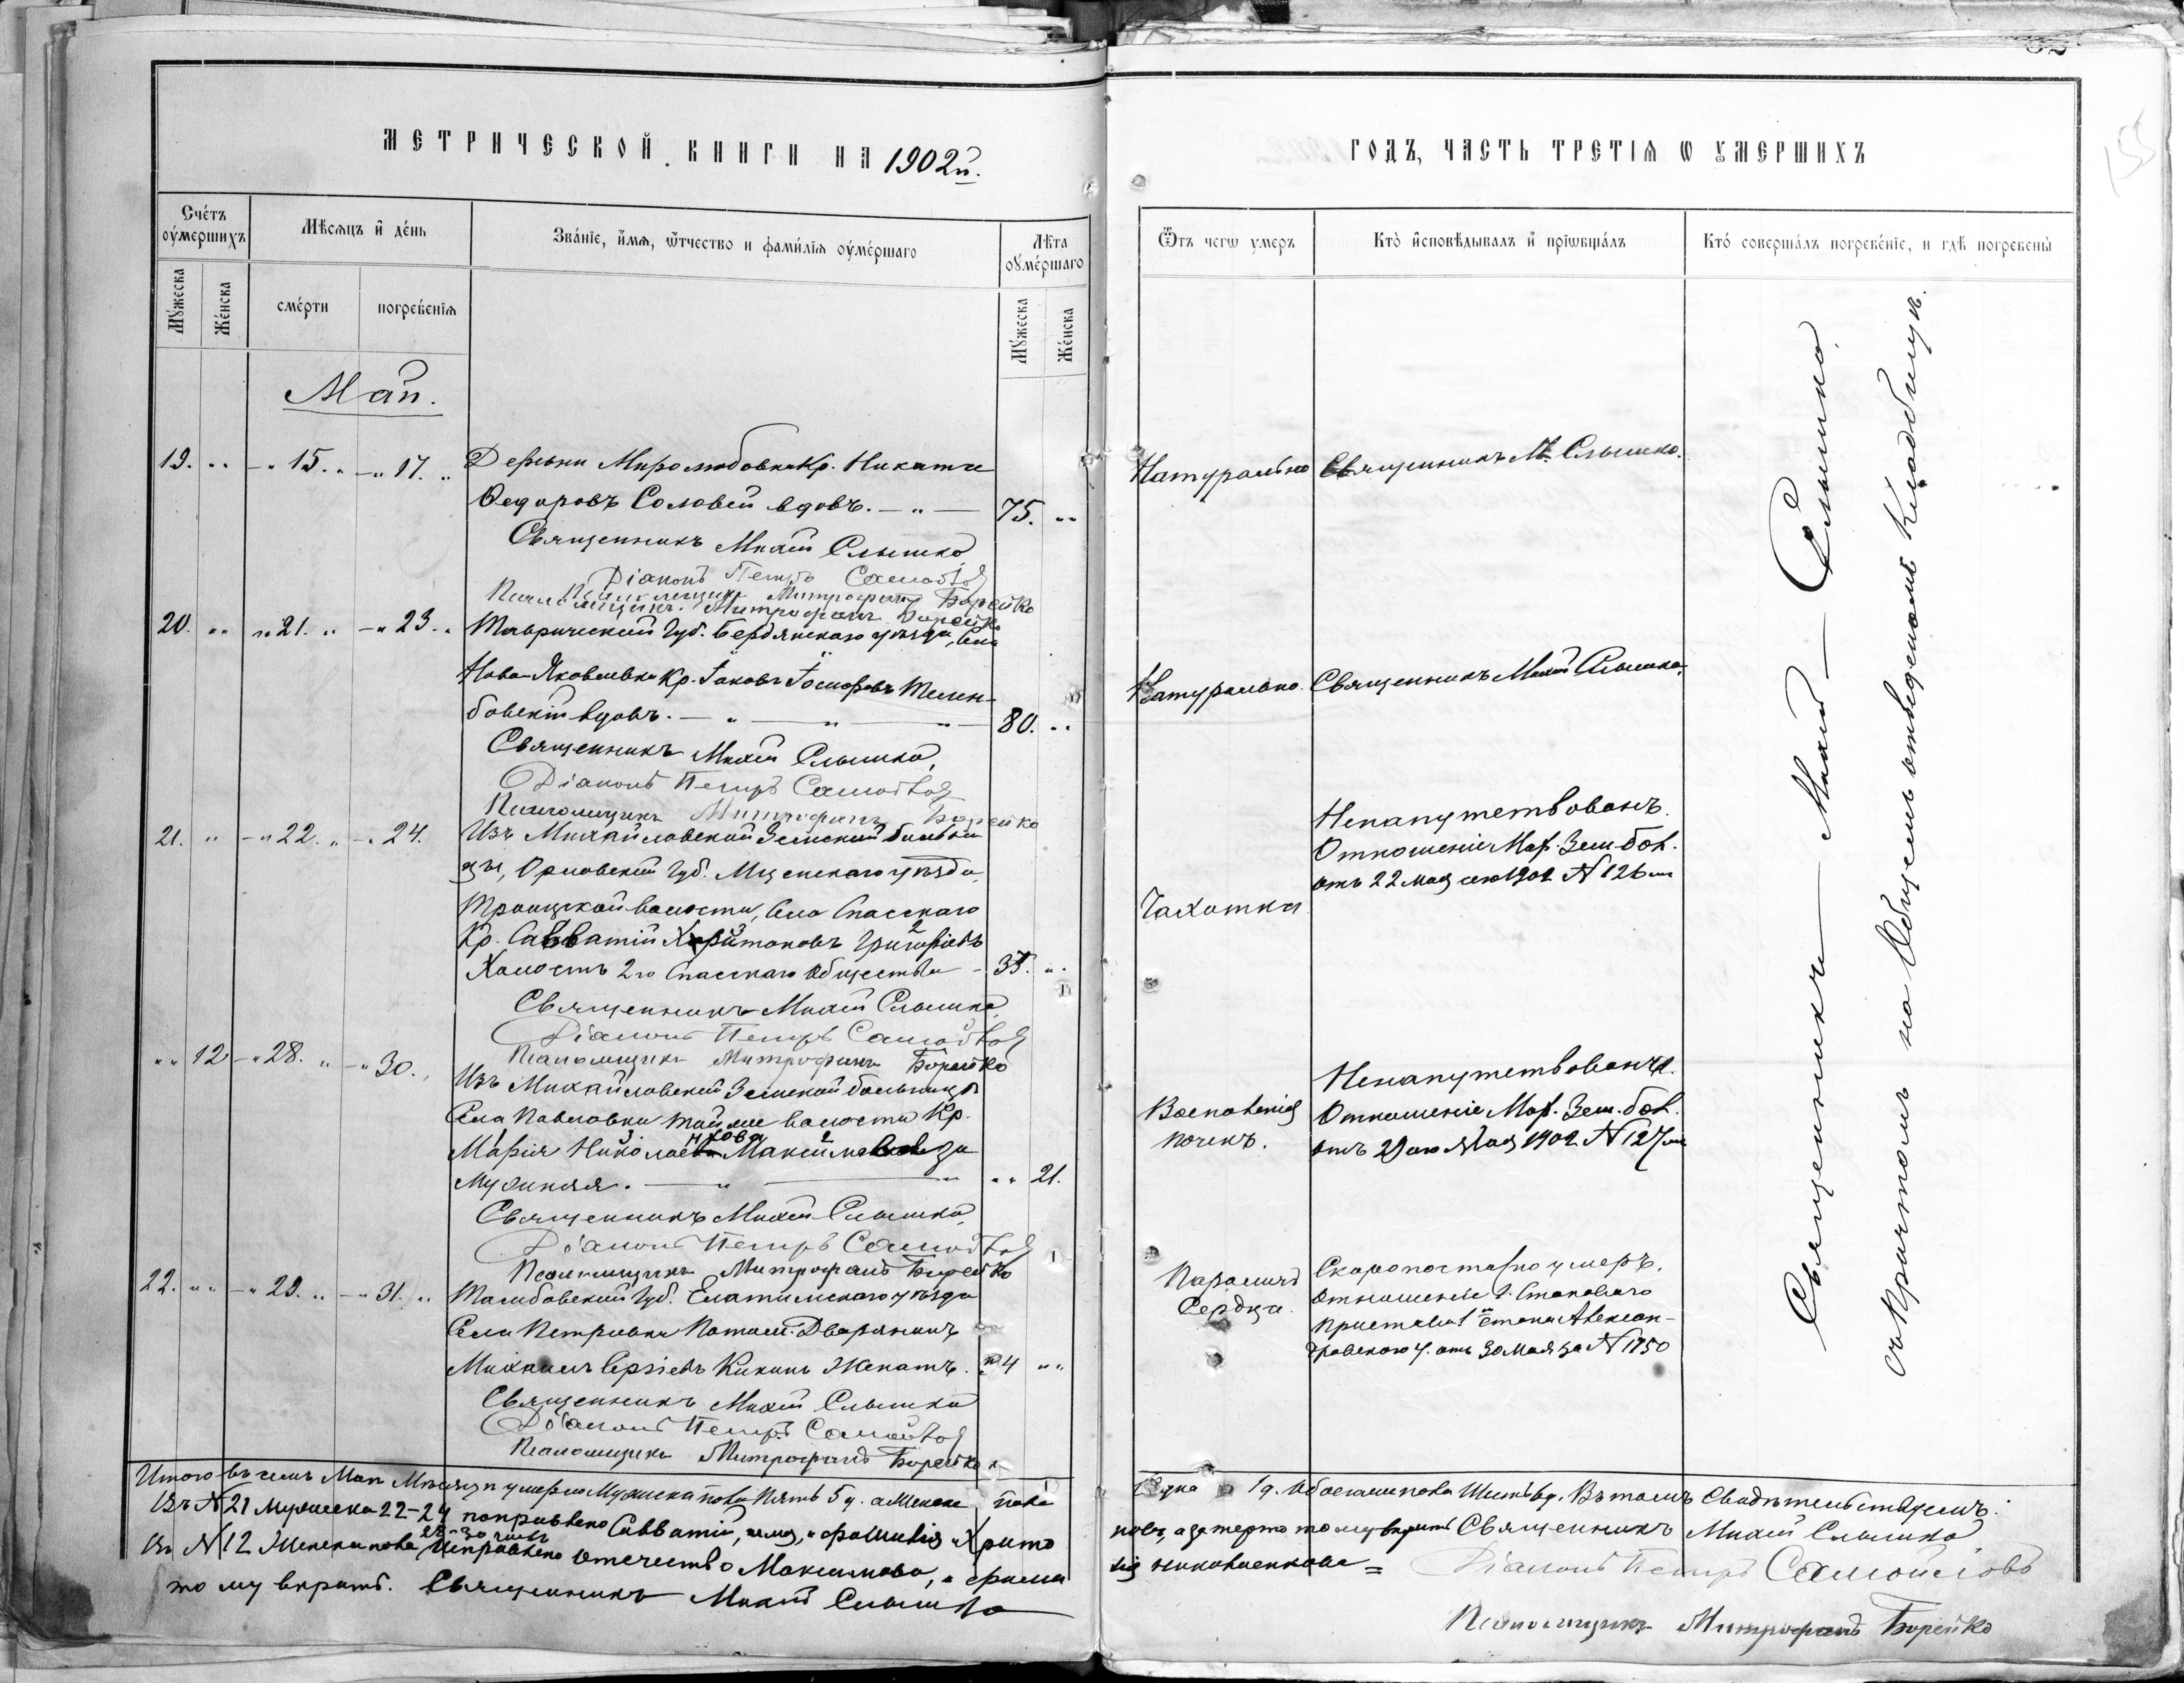 МЕТРИЧЕСКОЙ КНИГИ НА 1902й.
Счётъ оумершихъ
Мѣсяцъ и день
Званіе, имя, отчество и фамилія оумершаго
Лѣта оумершаго
Мужеска
Женска
смерти
погребенія
Мужеска
Женска
Май.
19. " - " 15. " - " 17. " Деревни Миролюбовки Кр. Никита
Федоровъ Соловей вдовъ. - " - 75. "
Священникъ Михаил Слышко
Діаконъ Петръ Самойлов
Псаломщикъ Митрофанъ Борейко
Псаломщикъ Митрофанъ Борейко
20. " " 21. " - " 23. " Таврической Губ. Бердянскаго уѣзда, Села
Ново-Яковлевки Кр. Іаковъ Іосифовъ
бовскій вдовъ. - " - " - " - 80. "
Священникъ Михаил Слышко,
Діаконъ Петръ Самойлов
Псаломщикъ Митрофанъ Борейко
21. " - " 22. " - " 24. Изъ Михайловской Земской больни
цы, Орловской Губ. Мценскаго уѣзда,
Троицкой волости, Села Спасскаго
Кр. Савватій Харитоновъ Григорьевъ
Холостъ 2го Спасскаго Общества - 35. "
Священникъ Михаил Слышко,
Діаконъ Петръ Самойлов
Псаломщикъ Митрофанъ Борейко
" " 12 - " 28. " - " 30. " Изъ Михайловской Земской больницы
Села Павловки той же волости Кр.
Марія Николаева Максимова за
мужняя. - " - " " 21.
Священникъ Михаил Слышко,
Діаконъ Петръ Самойлов
Псаломщикъ Митрофанъ Борейко
22. " " - " 29. " - " 31. " Тамбовской Губ. Елатомскаго уѣзда
Села Петровки Потом. Дворянинъ
Михаилъ Сергіевъ Кикинъ Женатъ. 4 "
Священникъ Михаил Слышко
Діаконъ Петръ Самойлов
Псаломщикъ Митрофанъ Борейко
Итого въ семъ Маи Мѣсяцѣ умерло Мужеска пола Пять 5 ч. а Женска пола
Въ № 21 Мужеска 22-24 поправлено Савватій, фамилія Харито
Въ № 12 Женска пола 28-30 Исправлено отечество Максимова, и фами
тому вѣрить. Священникъ Михаил Слышко
ГОДЪ, ЧАСТЬ ТРЕТІЯ О УМЕРШИХЪ
155
Отъ чего умеръ
Кто исповѣдывалъ и пріобщалъ
Кто совершалъ погребеніе, и гдѣ погребены
Натурально Священникъ М. Слышко.
Натурально. Священникъ Михаил Слышко,
Ненапутствованъ.
Отношеніе Мих. Зем. бол.
отъ 22 мая сего 1902 № 126
Чахотка
Ненапутствована.
Воспаленіе Отношеніе Мих. Зем. бол.
почекъ. отъ 29 го Мая 1902 № 127
Параличъ Скоропостижно умеръ.
Сердца. Отношеніе Г. Становаго
Пристава 1го стана Алексан-
дровскаго у. отъ 30 Мая за № 1750
Священникъ — Михаил — Слышко
съ причтомъ на Общемъ отведенномъ Кладбищѣ.
Одна 1 ч. Обоего пола Шесть 6 ч. Въ томъ Свидѣтельствуемъ:
новъ, а затерто тому вѣрить Священникъ Михаил Слышко
лія =
Діаконъ Петръ Самойловъ
Псаломщикъ Митрофанъ Борейко